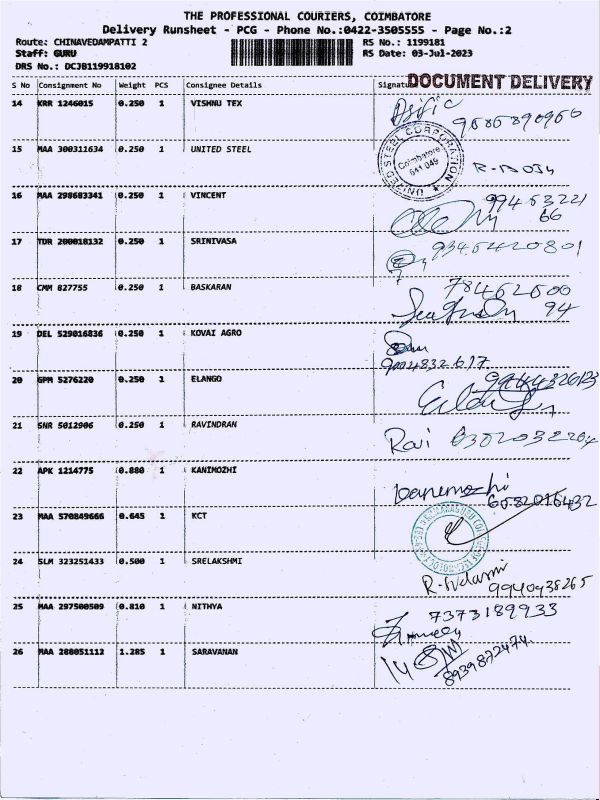 THE PROFESSIONAL COURIERS, COIMBATORE
Delivery Runsheet - PCG - Phone No.:0422-3505555 - Page No.:2
Route: CHINAVEDAMPATTI 2 RS No.: 1199181
Staff: GURU RS Date: 03-Jul-2023
DRS No.: DCJB119918102
S No Consignment No Weight PCS Consignee Details Signatu DOCUMENT DELIVERY
14 KRR 1246015 0.250 1 VISHNU TEX
15 MAA 300311634 0.250 1 UNITED STEEL UNITED STEEL CORPORATION Coimbatore 641 049
16 MAA 298683341 0.250 1 VINCENT 99453221
66
17 TDR 200018132 0.250 1 SRINIVASA 9345420801
18 CMM 827755 0.250 1 BASKARAN
94
19 DEL 529016836 0.250 1 KOVAI AGRO
9004832617
20 GPM 5276220 0.250 1 ELANGO
21 SNR 5012906 0.250 1 RAVINDRAN Ravi
22 APK 1214775 0.880 1 KANIMOZHI
6382016432
23 MAA 570849666 0.645 1 KCT
24 SLM 323251433 0.500 1 SRELAKSHMI
9940938265
25 MAA 297500509 0.810 1 NITHYA 7373189933
26 MAA 288051112 1.285 1 SARAVANAN
8939872474